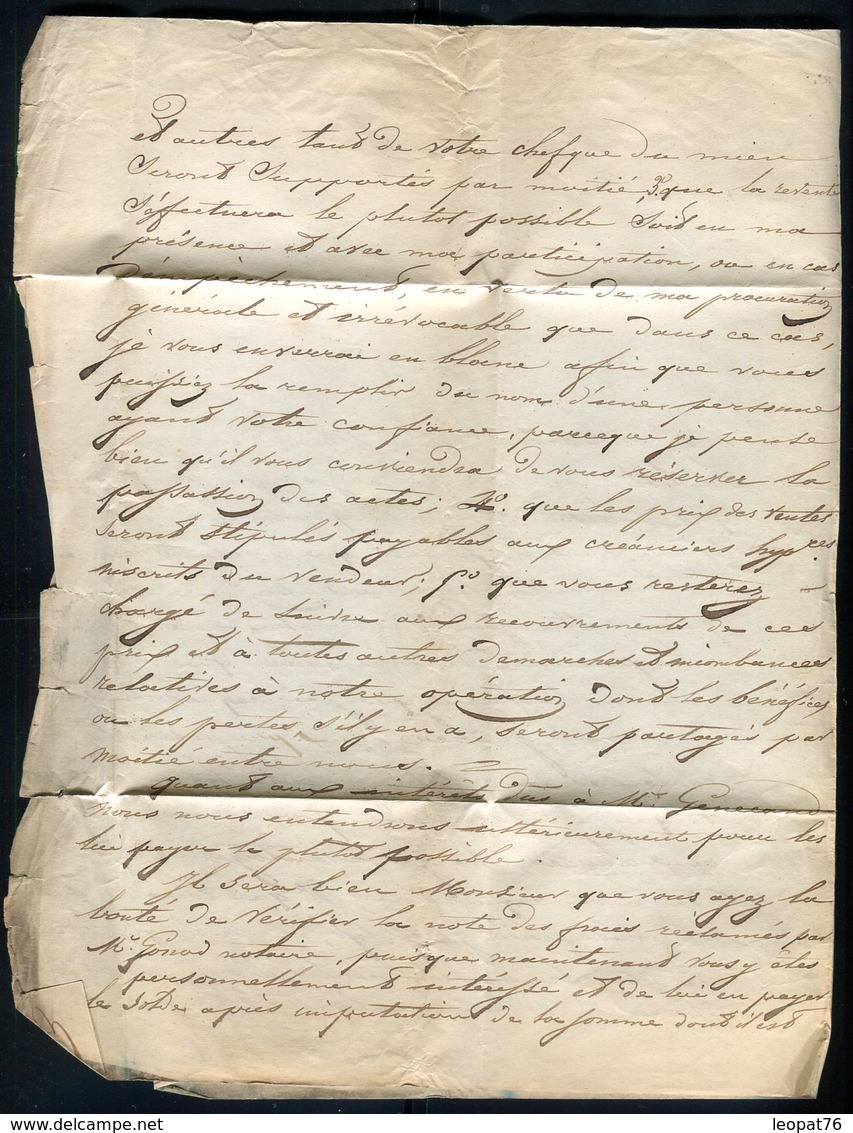 et autres tant de votre chef que du mien
seront supportés par moitié, 3.° que la revente
s'effectuera le plutot possible soit en ma
présence et avec ma participation, ou en cas
d'empèchement, en vertu de ma procuration
générale et irrévocable que dans ce cas,
je vous enverrai en blanc afin que vous
puissiez la remplir du nom d'une personne
ayant votre confiance, parceque je pense
bien qu'il vous conviendra de vous réserver la
passation des actes; 4.° que les prix des ventes
seront stipulés payables aux créanciers hyp.res
inscrits du vendeur; 5.° que vous resterez
chargé de suivre aux recouvrements de ces
prix et à toutes autres demarches et incombances
relatives à notre opération dont les bénéfices
ou les pertes s'il y en a, seront partagés par
moitié entre nous.
quant aux intérêts dus à Mr.
nous nous entendrons ultérieurement pour les
lui payer le plutot possible.
Il sera bien Monsieur que vous ayez la
bonté de vérifier la note des frais réclamés par
Mr. Gonod notaire, puisque maintenant vous y êtes
personnellement intéressé et de lui en payer
le solde après imputation de la somme dont il est
leopat76